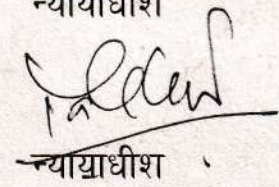 न्यायाधीश
न्यायाधीश